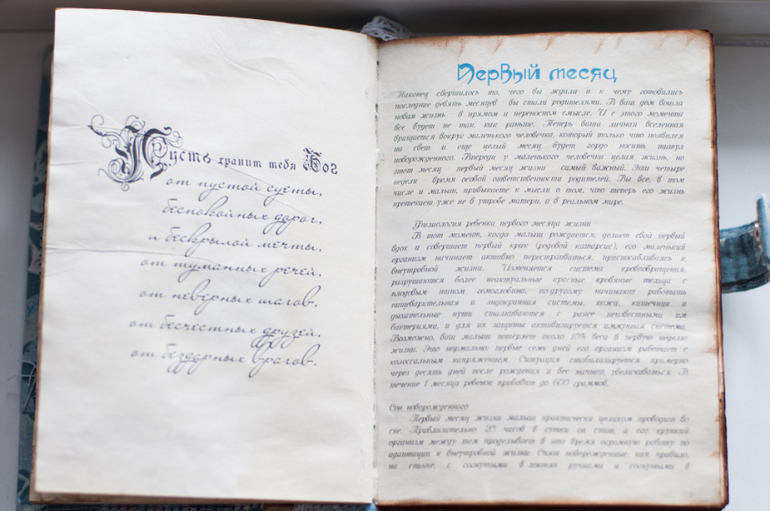 Пусть хранит тебя Бог
от пустой суеты,
беспокойных дорог,
и бескрылой мечты,
от туманных речей,
от неверных шагов,
от бесчестных друзей,
от бездарных врагов.
Первый месяц
Наконец свершилось то, чего вы ждали и к чему готовились
последние девять месяцев вы стали родителями. В ваш дом вошла
новая жизнь в прямом и переносном смысле. И с этого момента
все будет не так, как раньше. Теперь ваша личная вселенная
вращается вокруг маленького человечка, который только что появился
на свет и еще целый месяц будет гордо носить титул
новорожденного. Впереди у маленького человечка целая жизнь, но
этот месяц первый месяц жизни самый важный. Эти четыре
недели время особой ответственности родителей. Вы все, в том
числе и малыш, привыкаете к мысли о том, что теперь его жизнь
протекает уже не в утробе матери, а в реальном мире.
Физиология ребенка первого месяца жизни
В тот момент, когда малыш рождается, делает свой первый
вдох и совершает первый крик (родовой катарсис), его маленький
организм начинает активно перестраиваться, приспосабливаясь к
внеутробной жизни. Изменяется система кровообращения,
разрушаются более неактуальные красные кровяные тельца с
плодовым типом гемоглобина, по-другому начинают работать
пищеварительная и эндокринная системы, кожа, кишечник и
дыхательные пути сталкиваются с ранее неизвестными им
бактериями, и для их защиты активизируется иммунная система.
Возможно, ваш малыш потеряет около 10% веса в первую неделю
жизни. Это нормально: первые семь дней его организм работает с
колоссальным напряжением. Ситуация стабилизируется примерно
через десять дней после рождения и вес начнет увеличиваться. В
течение 1 месяца ребенок прибавит до 600 граммов.
Сон новорожденного
Первый месяц жизни малыш практически целиком проводит во
сне. Приблизительно 20 часов в сутки он спит, а его хрупкий
организм между тем проделывает в это время огромную работу по
адаптации к внеутробной жизни. Спят новорожденные, как правило,
на спине, с согнутыми в локтях ручками и согнутыми в